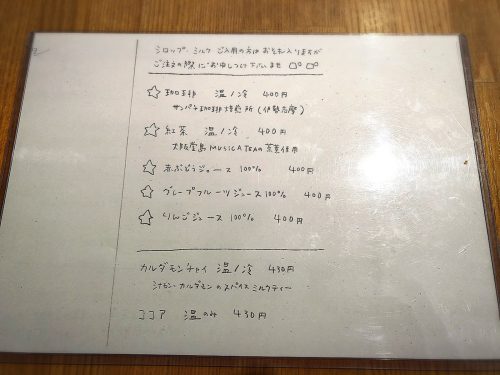 シロップ、ミルク ご入用の方はお手数入りますが
ご注文の際にお申しつけ下さいませ
☆ 珈琲 温/冷 400円
サンパチ珈琲焙煎所(伊勢志摩)
☆ 紅茶 温/冷 400円
大阪堂島MUSICA TEAの茶葉使用
☆ 赤ぶどうジュース 100% 400円
☆ グレープフルーツジュース 100% 400円
☆ りんごジュース 100% 400円
カルダモンチャイ 温/冷 430円
シナモン・カルダモンのスパイスミルクティー
ココア 温のみ 430円